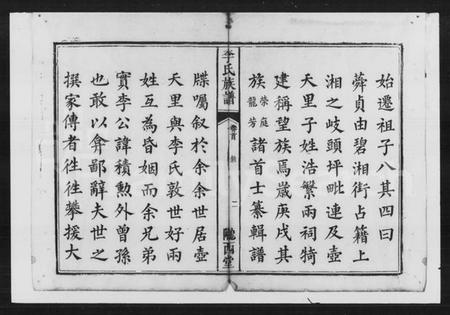 始遷祖子八其四曰
蕣貞由碧湘街占籍上
湘之岐頭坪毗連及壺
天里子姓浩繁兩祠犄
建稱望族焉歲庚戌其
族榮庭龍芳諸首士纂輯譜
李氏族譜
卷首
二
隴西堂
牒囑叙於余余世居壺
天里與李氏敦世好兩
姓互為昏姻而余兄弟
實李公諱積勲外曾孫
也敢以弇鄙辭夫世之
撰家傳者徃徃攀援大